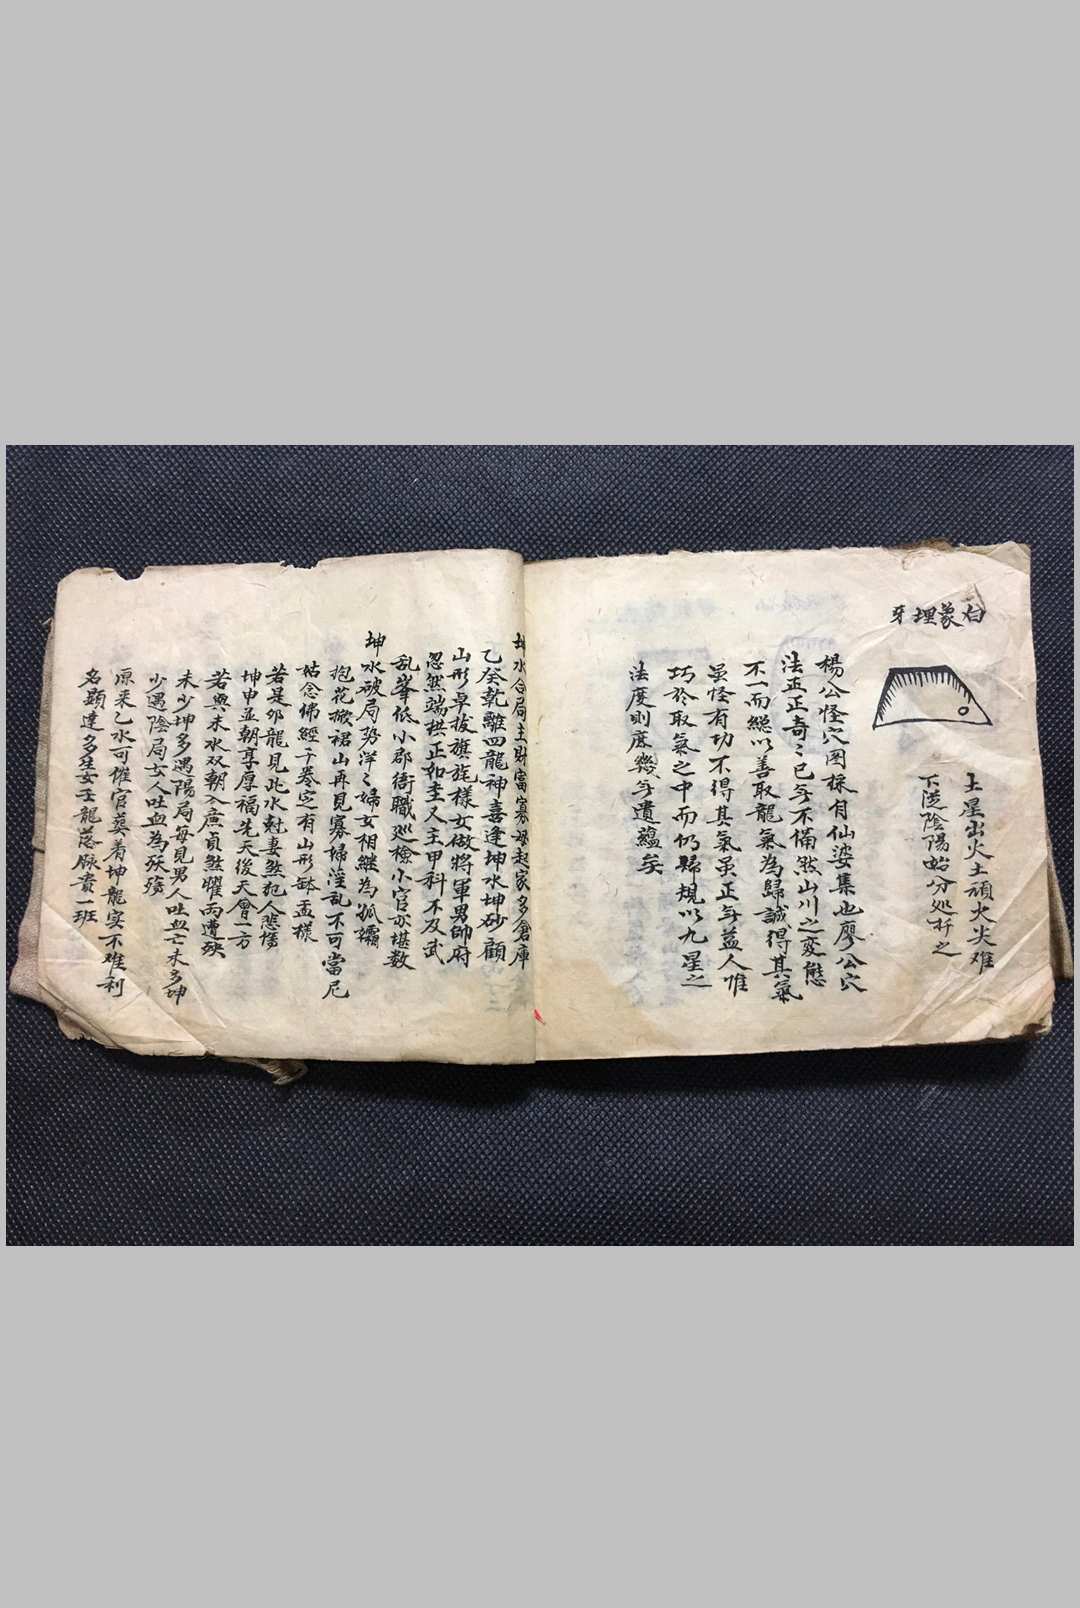 白象埋牙
土星出火土頑火尖难
下從陰陽始分処扦之
楊公怪穴图採自仙婆集也廖公穴
法正正奇々已无不偹然山川之变態
不一而緫以善取龍氣為歸誠得其氣
虽怪有功不得其氣虽正无益人惟
巧於取氣之中而仍歸規以九星之
法度則庶幾无遺蘊矣
坤水合局主財富寡母起家多倉庫
乙癸乾離四龍神喜逢坤水坤砂顧
山形卓拔旗旄様女做将軍男帥府
忽然端拱正如圭又主甲科不及武
乱峯低小郡衙職巡檢小官亦堪数
坤水破局势洋々婦女相継為孤孀
抱花掀裙山再見寡婦淫乱不可當尼
姑念佛經千卷定有山形缽盂樣
若是卯龍見此水尅妻煞犯人悲慯
坤申並朝享厚福先天後天會一方
若與未水双朝入廉貞煞懼両遭殃
未少坤多遇陽局每見男人吐血亡未多坤
少遇陰局女人吐血為殀殤
原来乙水可催官葬着坤龍实不难利
名顕達多生女壬龍莅厥貴一班